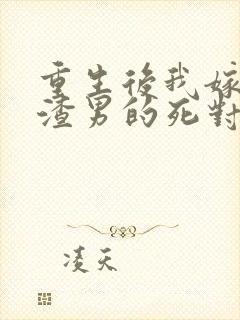 重生後我嫁
渣男的死對
凌天